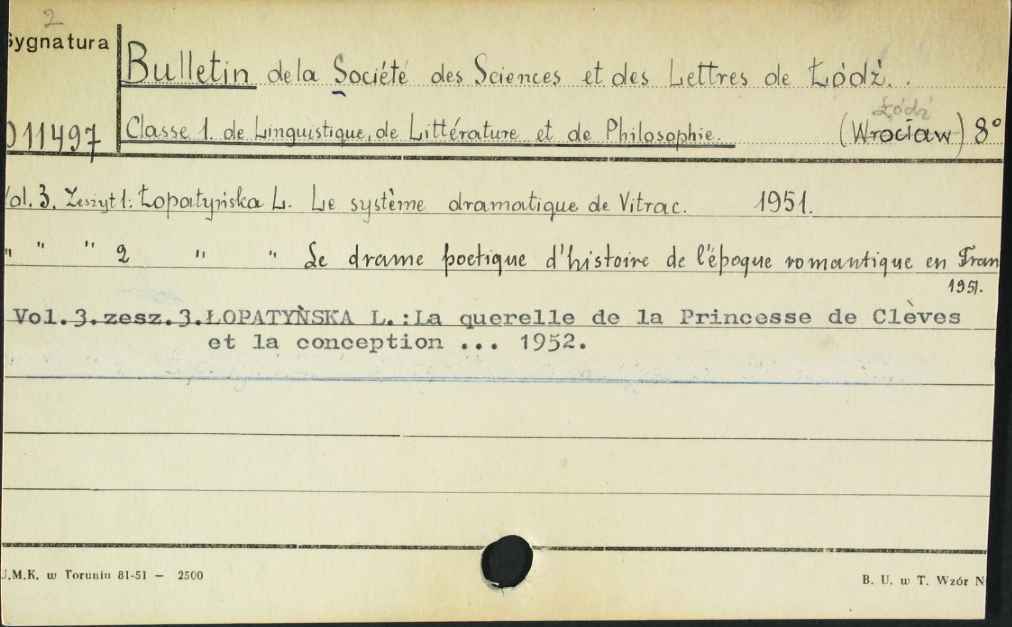 2
Sygnatura
Bulletin de la Société des Sciences et des Lettres de Łódź.
Łódź
011497 Classe 1. de Linguistique, de Littérature et de Philosophie. (Wrocław) 8°
Vol. 3. Zeszyt 1: Łopatyńska L. Le système dramatique de Vitrac. 1951.
" " " 2 " " Le drame poetique d'histoire de l'époque romantique en Fran
1951.
Vol.3.zesz.3.ŁOPATYŃSKA L.:La querelle de la Princesse de Clèves
et la conception ... 1952.
U.M.K. w Toruniu 81-51 — 2500
B. U. w T. Wzór N